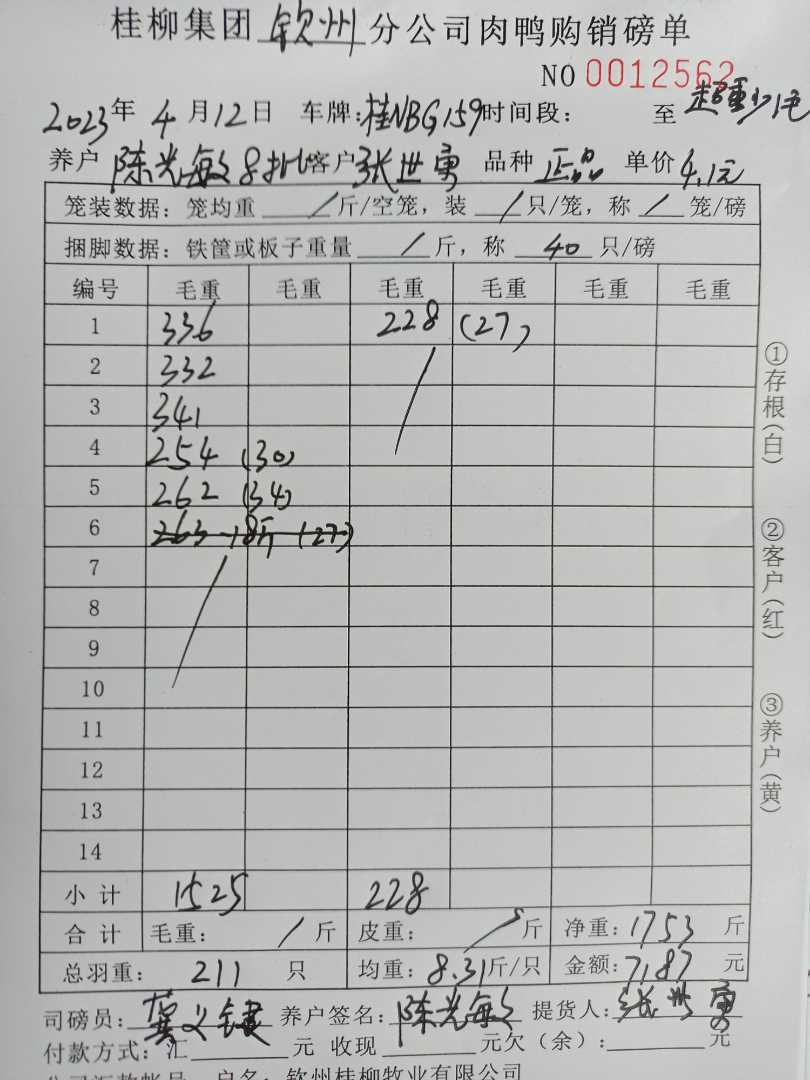 桂柳集团 钦州 分公司肉鸭购销磅单
NO 0012562
2023年 4月12日 车牌:桂NBG159 时间段: 至 超重少毛
养户 陈光敏8批 客户 张世勇 品种 正品 单价 4.1元
笼装数据: 笼均重 / 斤/空笼, 装 / 只/笼, 称 / 笼/磅
捆脚数据: 铁筐或板子重量 / 斤, 称 40 只/磅
编号 毛重 毛重 毛重 毛重 毛重 毛重
1 336 228 (27)
2 332
3 341
4 254 (30)
5 262 (34)
6 263-18斤 (27)
7
8
9
10
11
12
13
14
小计 1525 228
合计 毛重: / 斤 皮重: / 斤 净重: 1753 斤
总羽重: 211 只 均重: 8.31斤/只 金额: 7187 元
司磅员: 龚义键 养户签名: 陈光敏 提货人: 张世勇
付款方式: 汇 元 收现 元欠(余): 元
公司汇款帐号 户名: 钦州桂柳牧业有限公司
①存根(白)
②客户(红)
③养户(黄)